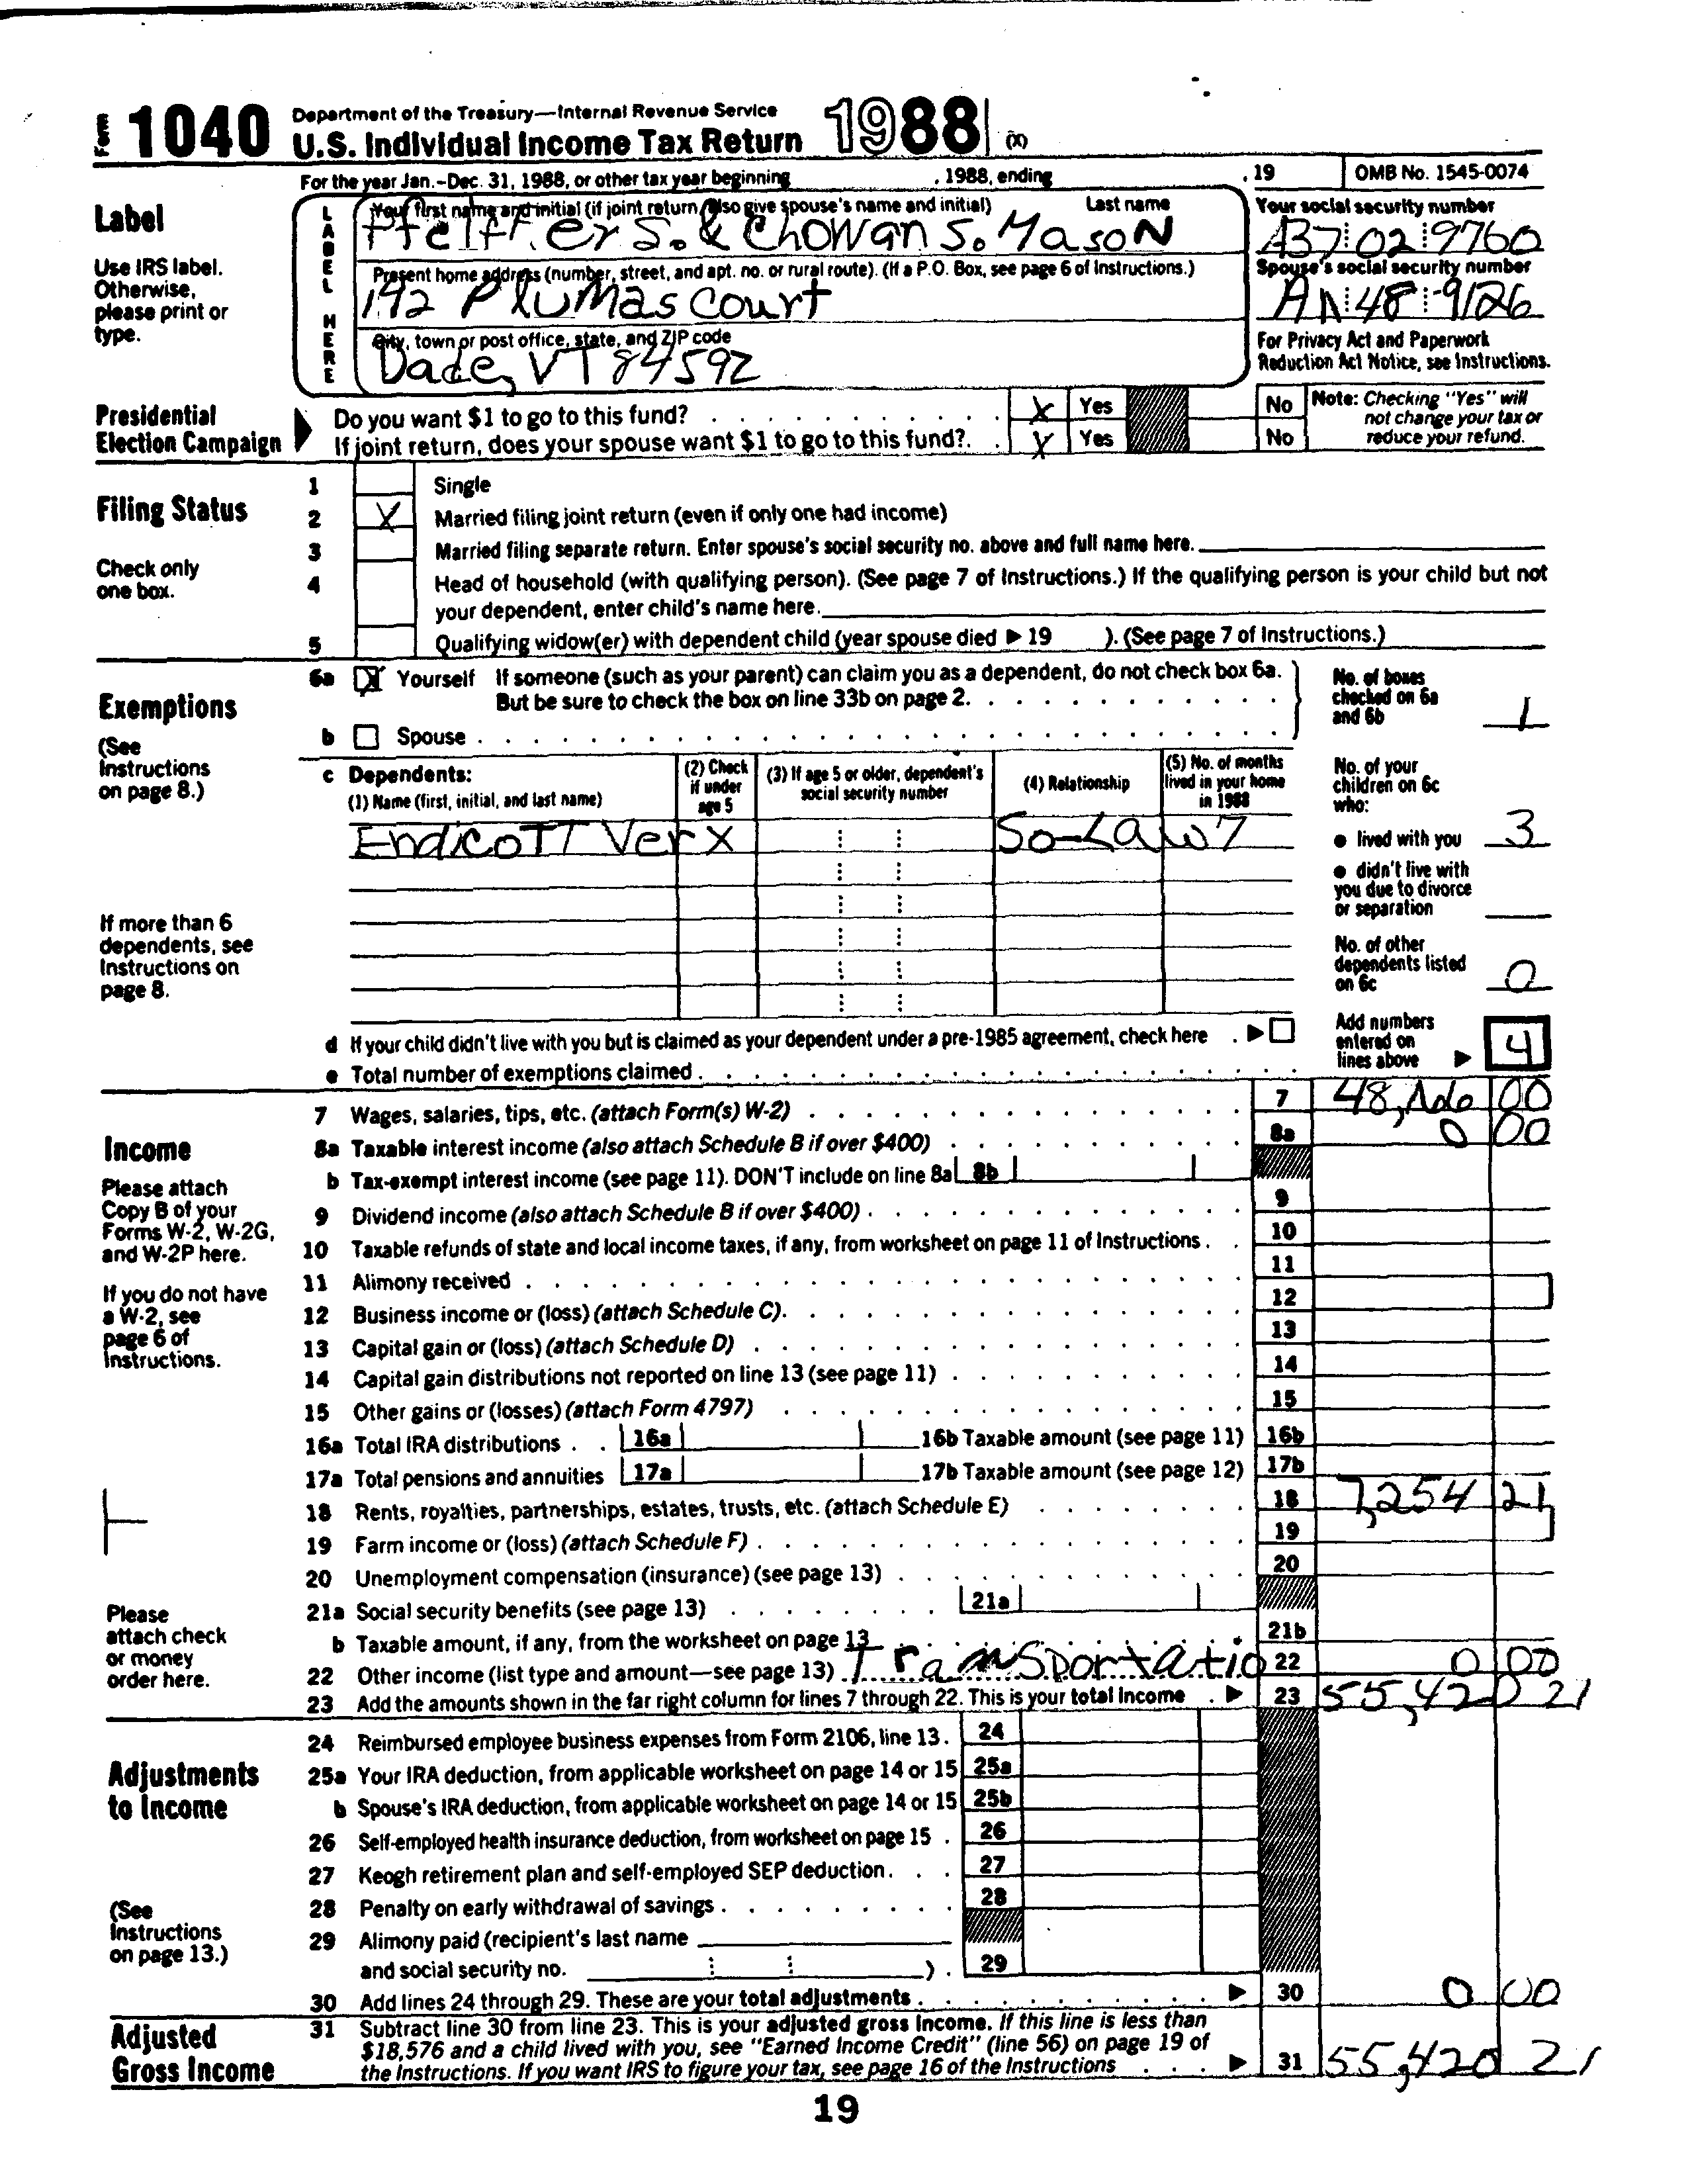 Form 1040 Department of the Treasury—Internal Revenue Service
U.S. Individual Income Tax Return 1988 (X)
For the year Jan.-Dec. 31, 1988, or other tax year beginning , 1988, ending , 19 OMB No. 1545-0074
Label
Use IRS label. Otherwise, please print or type.
LABEL HERE
Your first name and initial (if joint return, also give spouse's name and initial) Last name
Pfeiffer S. & Chowan S. Mason
Your social security number
437 02 9760
Present home address (number, street, and apt. no. or rural route). (If a P.O. Box, see page 6 of Instructions.)
192 Plumas Court
Spouse's social security number
48 9126
City, town or post office, state, and ZIP code
Dade, VT 84592
For Privacy Act and Paperwork Reduction Act Notice, see Instructions.
Presidential Election Campaign
Do you want $1 to go to this fund? X Yes No
If joint return, does your spouse want $1 to go to this fund? X Yes No
Note: Checking "Yes" will not change your tax or reduce your refund.
Filing Status
Check only one box.
1 Single
2 X Married filing joint return (even if only one had income)
3 Married filing separate return. Enter spouse's social security no. above and full name here.
4 Head of household (with qualifying person). (See page 7 of Instructions.) If the qualifying person is your child but not
your dependent, enter child's name here.
5 Qualifying widow(er) with dependent child (year spouse died ▶ 19 ). (See page 7 of Instructions.)
Exemptions
(See Instructions on page 8.)
6a X Yourself If someone (such as your parent) can claim you as a dependent, do not check box 6a.
But be sure to check the box on line 33b on page 2.
b Spouse
No. of boxes checked on 6a and 6b 1
c Dependents:
(1) Name (first, initial, and last name)
(2) Check if under age 5
(3) If age 5 or older, dependent's social security number
(4) Relationship
(5) No. of months lived in your home in 1988
Endicott Ver X So-Law 7
No. of your children on 6c who:
● lived with you 3
● didn't live with you due to divorce or separation
No. of other dependents listed on 6c 0
If more than 6 dependents, see Instructions on page 8.
d If your child didn't live with you but is claimed as your dependent under a pre-1985 agreement, check here ▶
e Total number of exemptions claimed
Add numbers entered on lines above ▶ 4
Income
Please attach Copy B of your Forms W-2, W-2G, and W-2P here.
If you do not have a W-2, see page 6 of Instructions.
Please attach check or money order here.
7 Wages, salaries, tips, etc. (attach Form(s) W-2) 7 00
8a Taxable interest income (also attach Schedule B if over $400) 8a 0 00
b Tax-exempt interest income (see page 11). DON'T include on line 8a 8b
9 Dividend income (also attach Schedule B if over $400) 9
10 Taxable refunds of state and local income taxes, if any, from worksheet on page 11 of Instructions 10
11 Alimony received 11
12 Business income or (loss) (attach Schedule C) 12
13 Capital gain or (loss) (attach Schedule D) 13
14 Capital gain distributions not reported on line 13 (see page 11) 14
15 Other gains or (losses) (attach Form 4797) 15
16a Total IRA distributions 16a 16b Taxable amount (see page 11) 16b
17a Total pensions and annuities 17a 17b Taxable amount (see page 12) 17b
18 Rents, royalties, partnerships, estates, trusts, etc. (attach Schedule E) 18 7,254 21
19 Farm income or (loss) (attach Schedule F) 19
20 Unemployment compensation (insurance) (see page 13) 20
21a Social security benefits (see page 13) 21a
b Taxable amount, if any, from the worksheet on page 13 21b
22 Other income (list type and amount—see page 13) Transportatio 22 0 00
23 Add the amounts shown in the far right column for lines 7 through 22. This is your total income ▶ 23 55,420 21
Adjustments to Income
(See Instructions on page 13.)
24 Reimbursed employee business expenses from Form 2106, line 13. 24
25a Your IRA deduction, from applicable worksheet on page 14 or 15 25a
b Spouse's IRA deduction, from applicable worksheet on page 14 or 15 25b
26 Self-employed health insurance deduction, from worksheet on page 15 26
27 Keogh retirement plan and self-employed SEP deduction 27
28 Penalty on early withdrawal of savings 28
29 Alimony paid (recipient's last name
and social security no. ) 29
30 Add lines 24 through 29. These are your total adjustments ▶ 30 0 00
Adjusted Gross Income
31 Subtract line 30 from line 23. This is your adjusted gross income. If this line is less than
$18,576 and a child lived with you, see "Earned Income Credit" (line 56) on page 19 of
the Instructions. If you want IRS to figure your tax, see page 16 of the Instructions ▶ 31 55,420 21
19